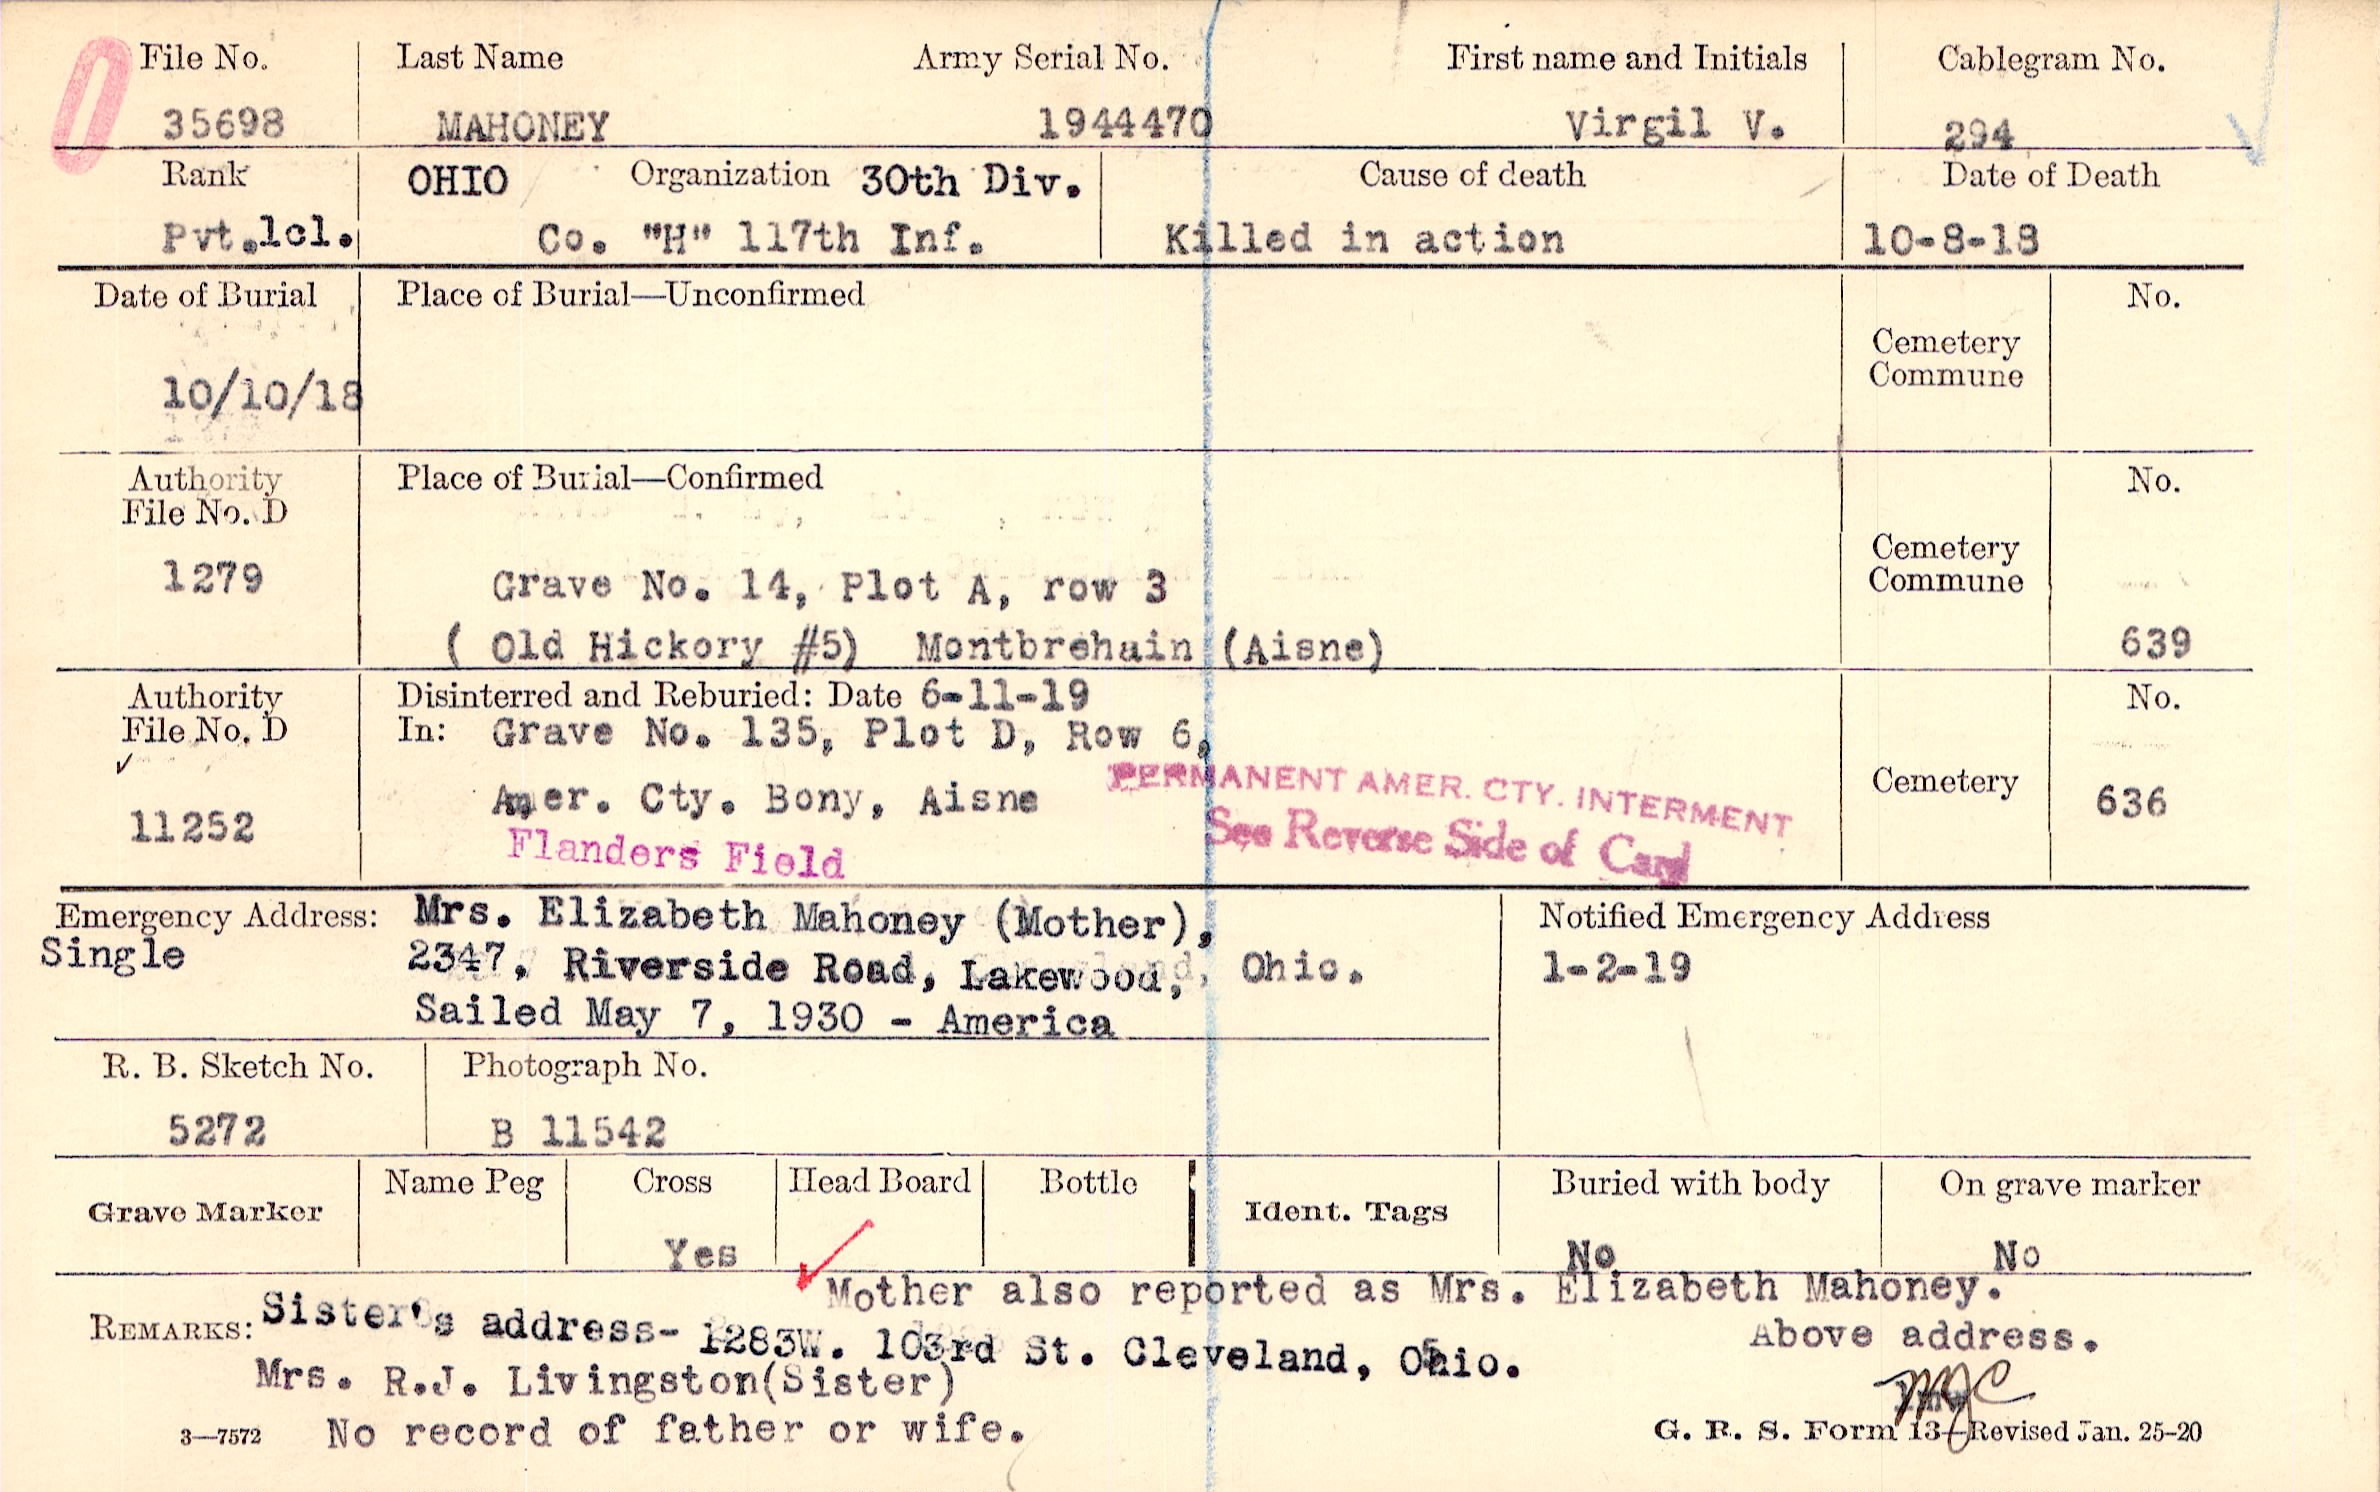 File No. Last Name Army Serial No. First name and Initials Cablegram No.
35698 MAHONEY 1944470 Virgil V. 294
Rank OHIO Organization 30th Div. Cause of death Date of Death
Pvt.1cl. Co. "H" 117th Inf. Killed in action 10-8-18
Date of Burial Place of Burial—Unconfirmed No.
Cemetery
Commune
10/10/18
Authority Place of Burial—Confirmed No.
File No. D
Cemetery
1279 Grave No. 14, Plot A, row 3 Commune
( Old Hickory #5) Montbrehain (Aisne) 639
Authority Disinterred and Reburied: Date 6-11-19 No.
File No. D In: Grave No. 135, Plot D, Row 6,
PERMANENT AMER. CTY. INTERMENT
Amer. Cty. Bony, Aisne Cemetery 636
11252 See Reverse Side of Card
Flanders Field
Emergency Address: Mrs. Elizabeth Mahoney (Mother), Notified Emergency Address
Single 2347, Riverside Road, Lakewood, Ohio. 1-2-19
Sailed May 7, 1930 - America
R. B. Sketch No. Photograph No.
5272 B 11542
Name Peg Cross Head Board Bottle Buried with body On grave marker
Grave Marker Ident. Tags
Yes No No
Mother also reported as Mrs. Elizabeth Mahoney.
REMARKS: Sister's address- 1283W. 103rd St. Cleveland, Ohio. Above address.
Mrs. R.J. Livingston(Sister)
3—7572 No record of father or wife. G. R. S. Form 13—Revised Jan. 25-20